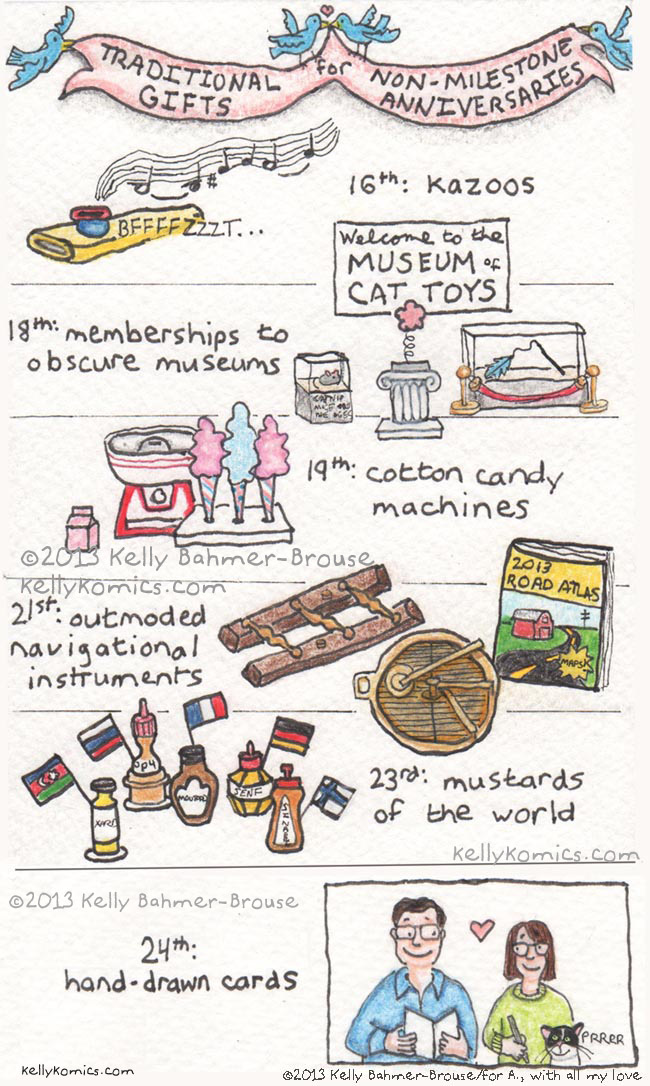 TRADITIONAL GIFTS
for
NON-MILESTONE ANNIVERSARIES
16th: kazoos
BFFFFZZZT...
Welcome to the
MUSEUM of
CAT TOYS
18th: memberships to
obscure museums
CATNIP
MICE
19th: cotton candy
machines
©2013 Kelly Bahmer-Brouse
kellykomics.com
2013
ROAD ATLAS
MAPS
21st: outmoded
navigational
instruments
SENF
23rd: mustards
of the world
kellykomics.com
©2013 Kelly Bahmer-Brouse
24th:
hand-drawn cards
PRRRR
kellykomics.com
©2013 Kelly Bahmer-Brouse/for A., with all my love